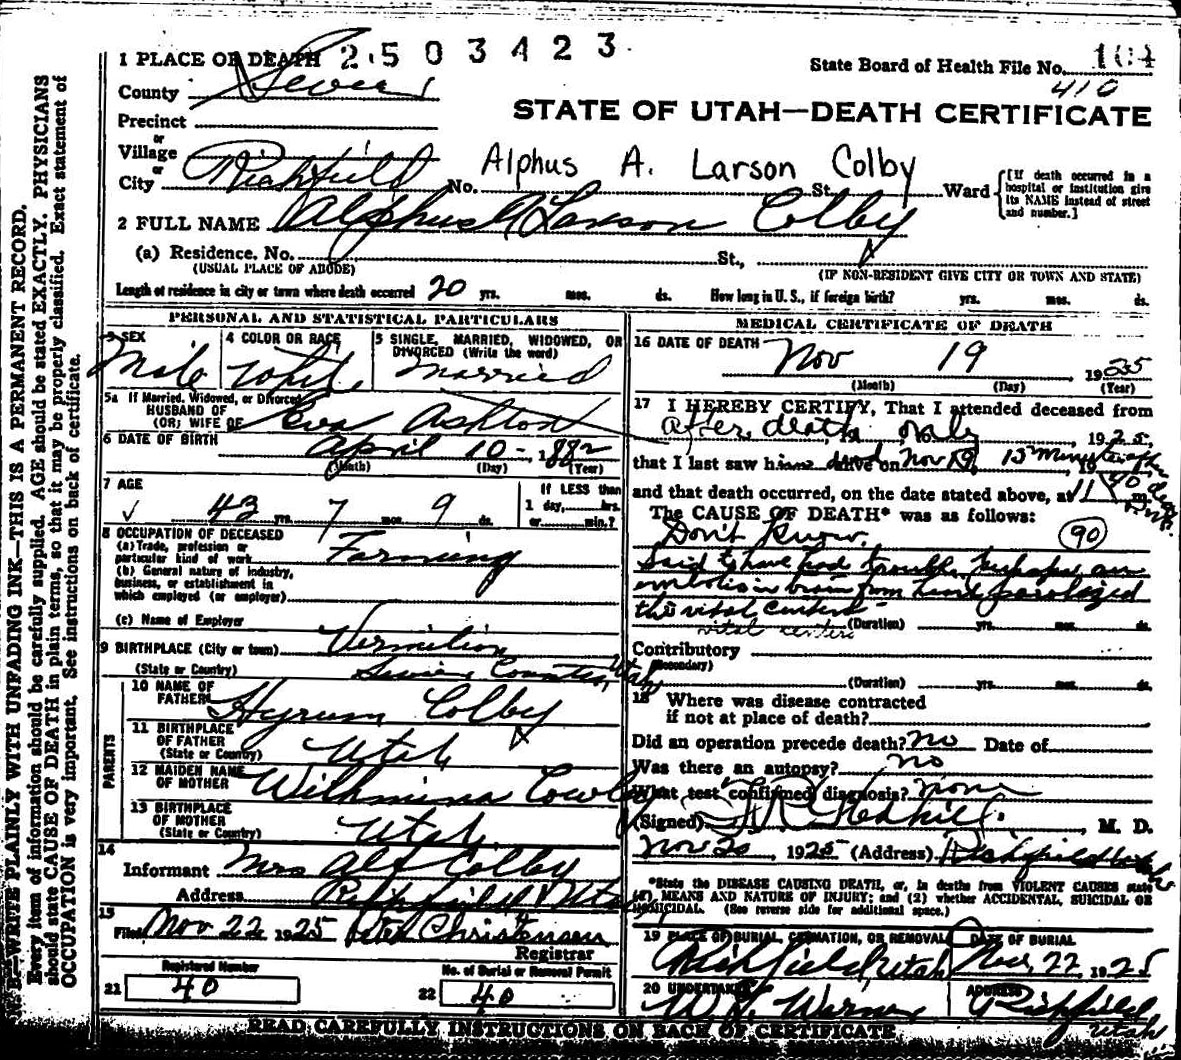 2503423
1 PLACE OF DEATH
State Board of Health File No. 104
410
County Sevier
STATE OF UTAH—DEATH CERTIFICATE
Precinct
or
Village
or
Alphus A. Larson Colby
City Richfield No. St. Ward
[If death occurred in a hospital or institution give its NAME instead of street and number.]
2 FULL NAME Alphus A Larson Colby
(a) Residence. No. St.,
(USUAL PLACE OF ABODE) (IF NON-RESIDENT GIVE CITY OR TOWN AND STATE)
Length of residence in city or town where death occurred 20 yrs. mos. ds. How long in U. S., if foreign birth? yrs. mos. ds.
PERSONAL AND STATISTICAL PARTICULARS
3 SEX Male
4 COLOR OR RACE White
5 SINGLE, MARRIED, WIDOWED, OR DIVORCED (Write the word) Married
5a If Married, Widowed, or Divorced
HUSBAND OF
(OR) WIFE OF Eva Ashton
6 DATE OF BIRTH April 10 - 1882
(Month) (Day) (Year)
7 AGE
43 yrs. 7 mos. 9 ds.
If LESS than
1 day, hrs.
or min.?
8 OCCUPATION OF DECEASED
(a) Trade, profession or
particular kind of work Farming
(b) General nature of industry,
business, or establishment in
which employed (or employer)
(c) Name of Employer
9 BIRTHPLACE (City or town) Vermilion
(State or Country) Sevier County, Utah
PARENTS
10 NAME OF
FATHER Hyrum Colby
11 BIRTHPLACE
OF FATHER
(State or Country) Utah
12 MAIDEN NAME
OF MOTHER Wilhmina Cowley
13 BIRTHPLACE
OF MOTHER
(State or Country) Utah
14
Informant Mrs Alf Colby
Address Richfield Utah
15
Filed Nov 22 1925 Christensen
Registrar
Registered Number
21 40
No. of Burial or Removal Permit
22 40
MEDICAL CERTIFICATE OF DEATH
16 DATE OF DEATH Nov 19 1925
(Month) (Day) (Year)
17 I HEREBY CERTIFY, That I attended deceased from
after death, 19 only, 1925,
that I last saw him dead alive on Nov 19, 15 minutes after death
and that death occurred, on the date stated above, at 11 40 m.
The CAUSE OF DEATH* was as follows:
Don't Know. 90
Said to have had trouble, perhaps an
embolis in brain from heart paralyzed
the vital centers -
(Duration) yrs. mos. ds.
vital centers
Contributory
(Secondary)
(Duration) yrs. mos. ds.
18 Where was disease contracted
if not at place of death?
Did an operation precede death? no Date of
Was there an autopsy? no
What test confirmed diagnosis? none
(Signed) M. D.
Nov 20, 1925 (Address) Richfield Utah
*State the DISEASE CAUSING DEATH, or, in deaths from VIOLENT CAUSES state
(1) MEANS AND NATURE OF INJURY; and (2) whether ACCIDENTAL, SUICIDAL OR
HOMICIDAL. (See reverse side for additional space.)
19 PLACE OF BURIAL, CREMATION, OR REMOVAL DATE OF BURIAL
Richfield, Utah Nov 22, 1925
20 UNDERTAKER ADDRESS
Richfield
Utah
READ CAREFULLY INSTRUCTIONS ON BACK OF CERTIFICATE
N. B.—WRITE PLAINLY WITH UNFADING INK—THIS IS A PERMANENT RECORD.
Every item of information should be carefully supplied. AGE should be stated EXACTLY. PHYSICIANS
should state CAUSE OF DEATH in plain terms, so that it may be properly classified. Exact statement of
OCCUPATION is very important. See instructions on back of certificate.